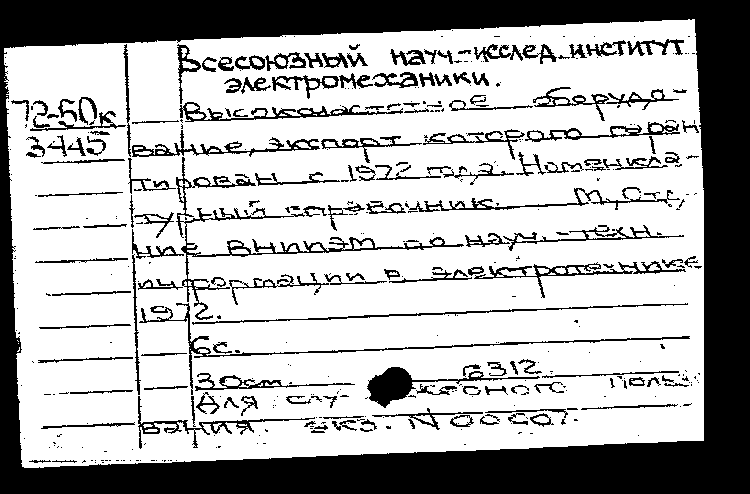 Всесоюзный науч.-исслед. институт
электромеханики.
72-50к
Высокочастотное оборудо-
3445
вание, экспорт которого гаран
тирован с 1972 года. Номенкла-
турный справочник. М., Отд,
ние ВНИИЭМ по науч.-техн.
информации в электротехнике
1972.
6с.
30см. в312
Для слу- жебного польз
вания. экз. N 00007.